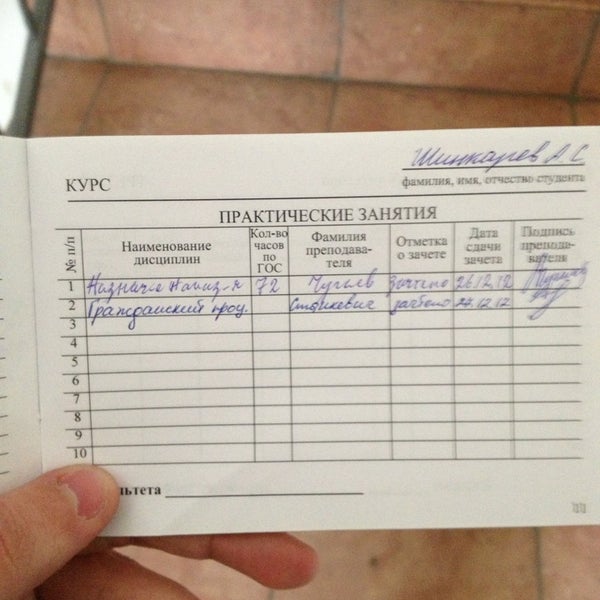 Шинкарев А. С
КУРС
фамилия, имя, отчество студента
ПРАКТИЧЕСКИЕ ЗАНЯТИЯ
№ п/п Наименование дисциплин Кол-во часов по ГОС Фамилия преподава-теля Отметка о зачете Дата сдачи зачета Подпись препода-вателя
1 Назнач-е Наказ-я 72 Зачтено 26.12.12
2 Гражданский проц. зачтено 24.12.12
3
4
5
6
7
8
9
10
льтета